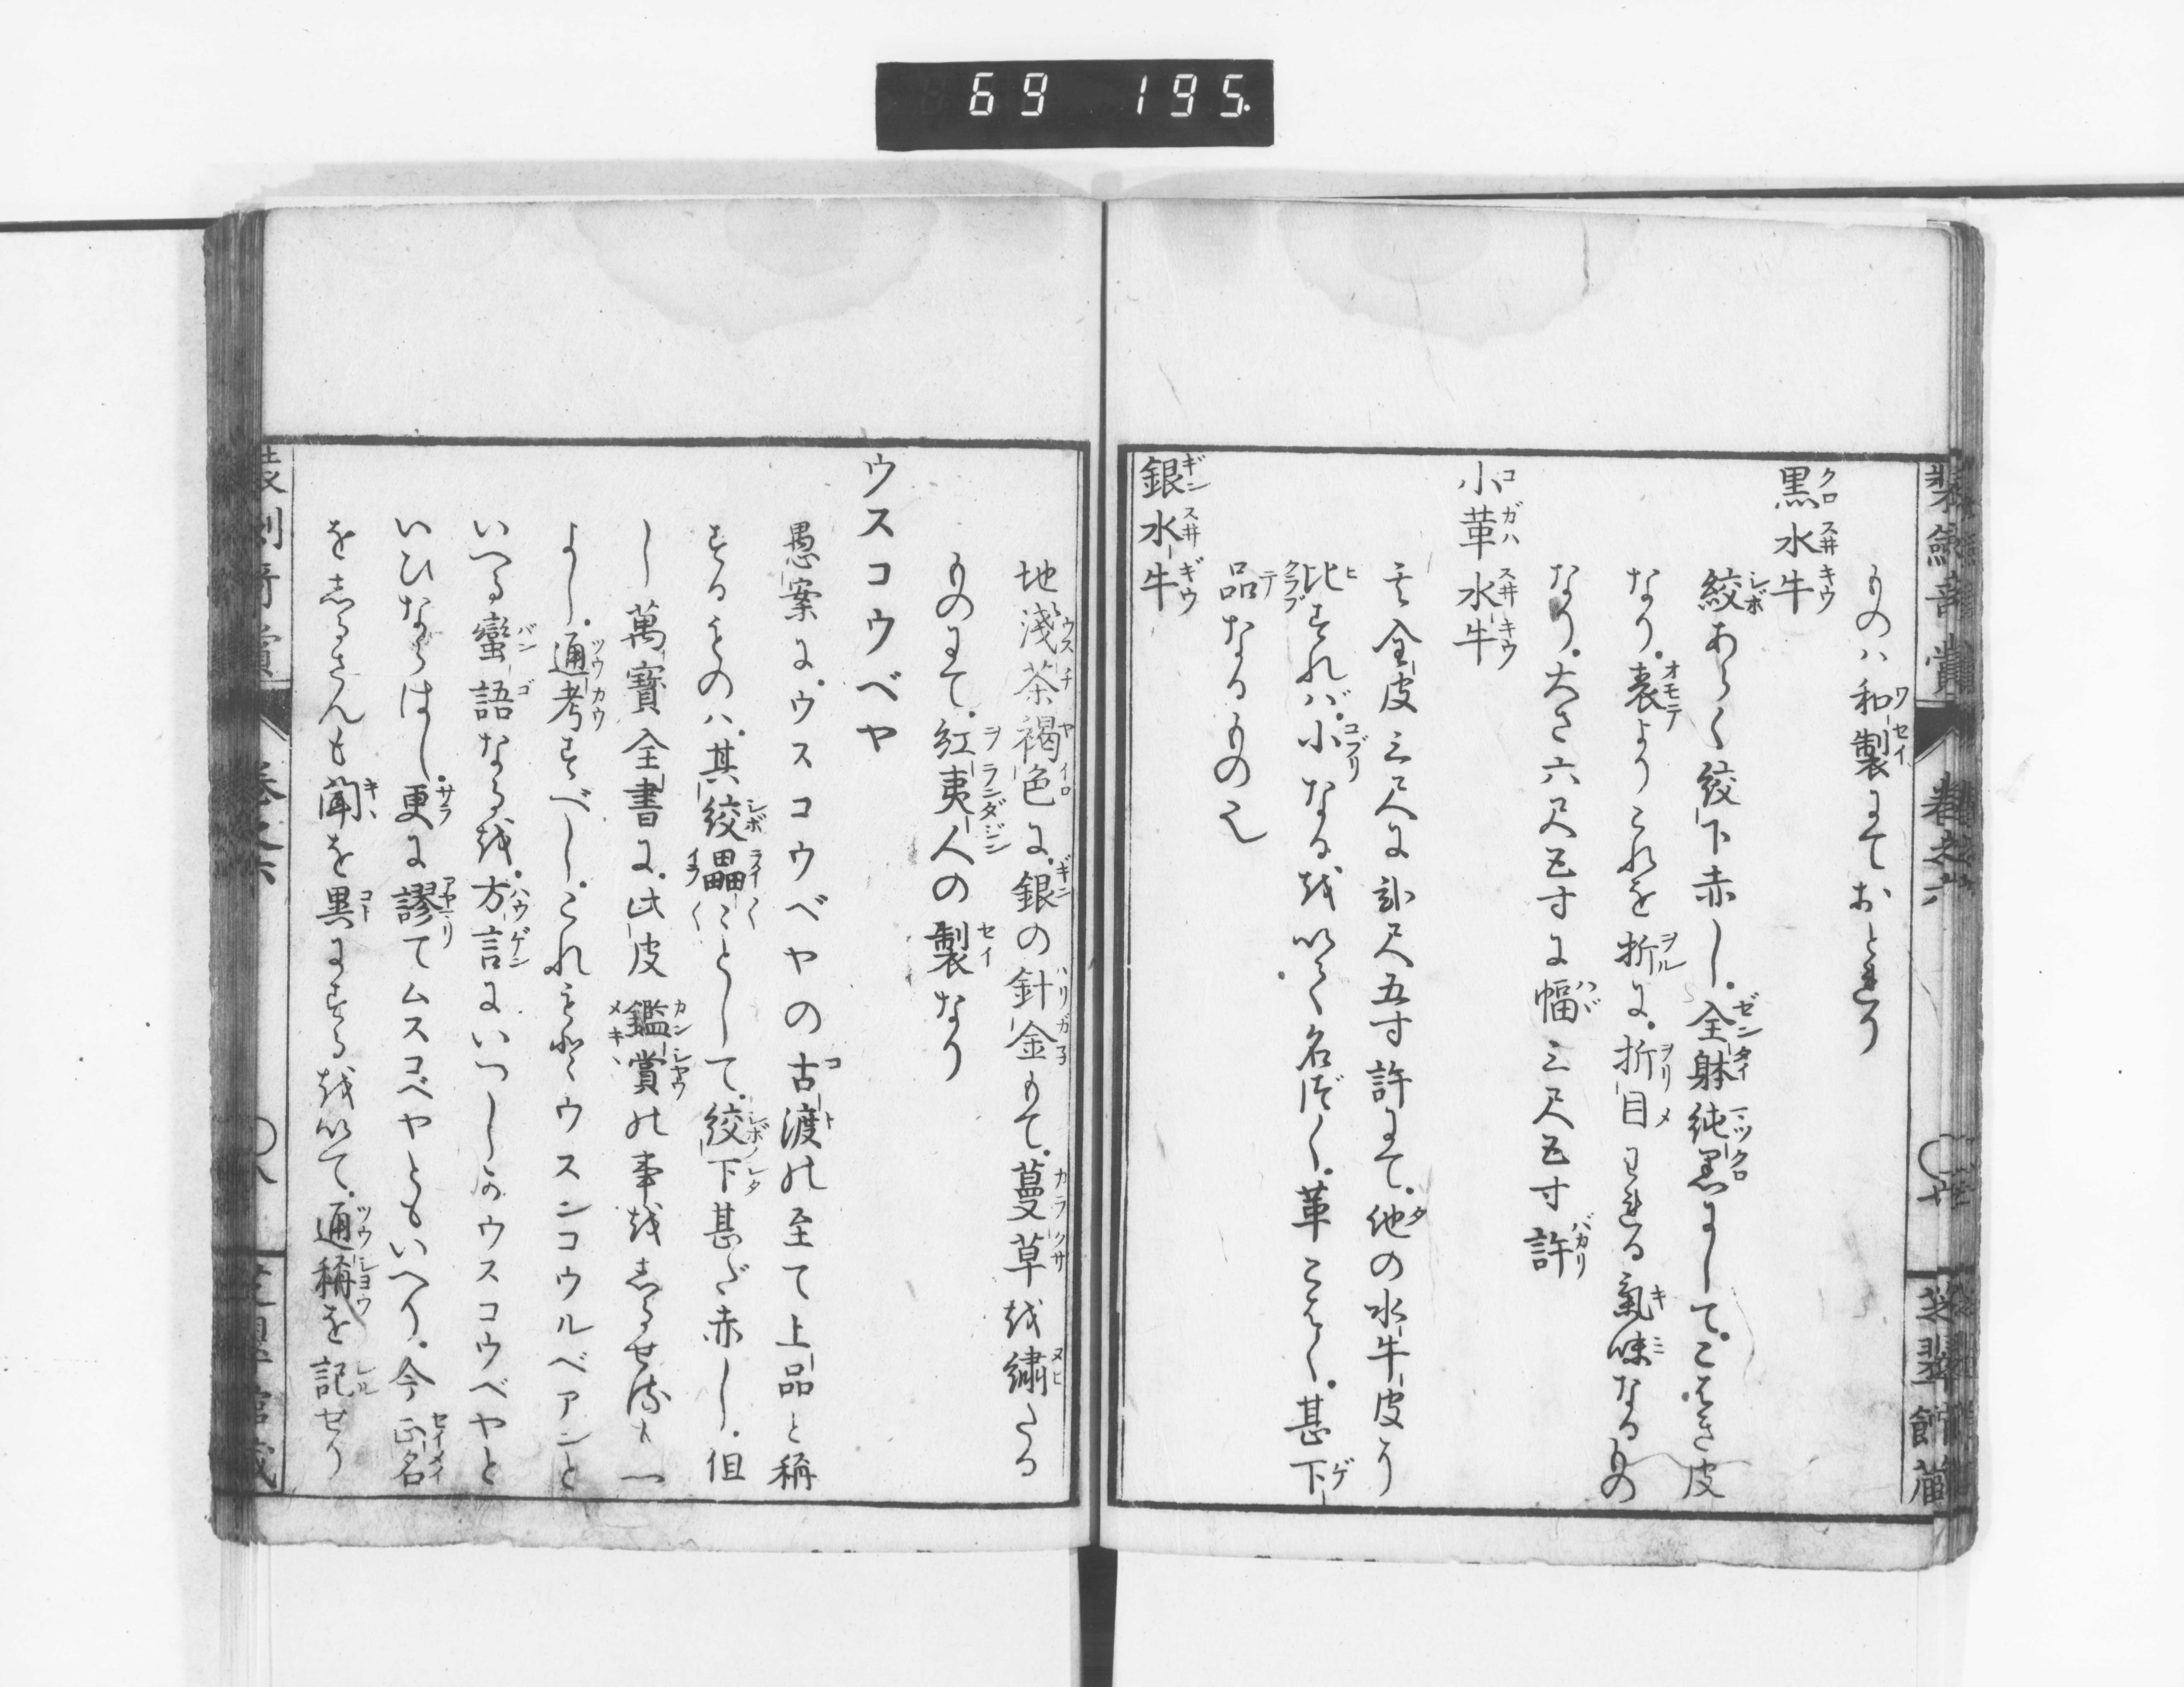 69 195.
ものハ和製にておとれり
黒水牛
絞あらく絞下赤し。全躰純黒にして。こはき皮
なり。表よりこれを折に。折目われる氣味なるもの
なり。大さ六尺五寸に幅三尺五寸許
小革水牛
其全皮三尺に貮尺五寸許にて。他の水牛皮より
比すれバ。小なるを以て名づく。革こはく。甚下
品なるもの也
銀水牛
地淺茶褐色に。銀の針金もて。蔓草を繡たる
ものにて。紅夷人の製なり
ウスコウベヤ
愚案に。ウスコウベヤの古渡の至て上品と稱
するものハ。其絞畾〻として。絞下甚だ赤し。但
し萬寶全書に。此皮鑑賞の事をしるせ
よし。通考すべし。これもとウスンコウルベアンと
いへる蠻語なるを。方言にいつしかウスコウベヤと
いひならはし。更に謬てムスコベヤともいへり。今正名
をしるさんも聞を異にするを以て。通稱を記せり